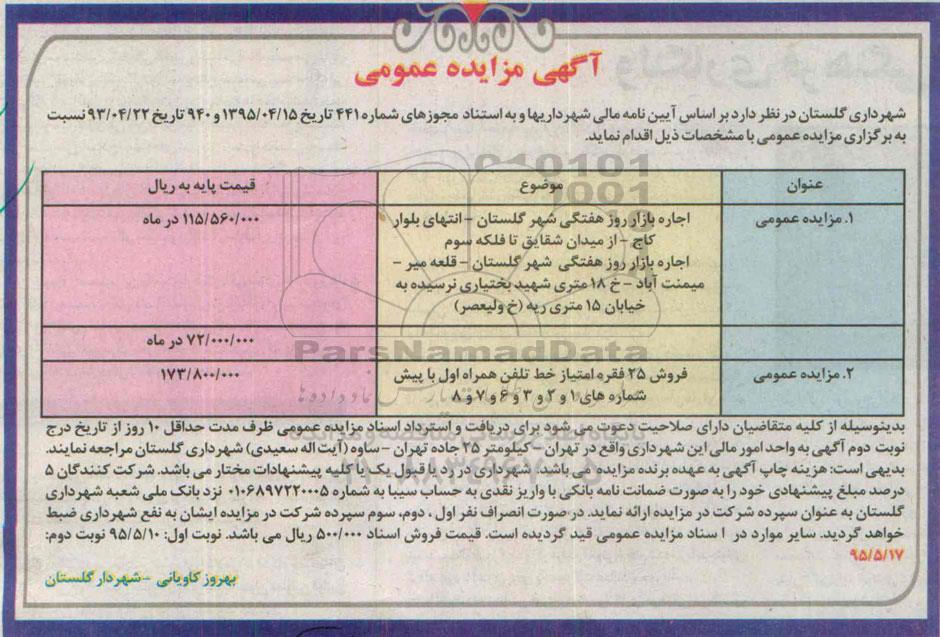 آگهی مزایده عمومی
شهرداری گلستان در نظر دارد بر اساس آیین نامه مالی شهرداریها و به استناد مجوزهای شماره ۴۴۱ تاریخ ۱۳۹۵/۰۴/۱۵ و ۹۴۰ تاریخ ۹۳/۰۴/۲۲ نسبت
به برگزاری مزایده عمومی با مشخصات ذیل اقدام نماید.
عنوان موضوع قیمت پایه به ریال
۱. مزایده عمومی اجاره بازار روز هفتگی شهر گلستان - انتهای بلوار ۱۱۵/۵۶۰/۰۰۰ در ماه
کاج - از میدان شقایق تا فلکه سوم
اجاره بازار روز هفتگی شهر گلستان - قلعه میر -
میمنت آباد - خ ۱۸ متری شهید بختیاری نرسیده به
خیابان ۱۵ متری ریه (خ ولیعصر)
۷۲/۰۰۰/۰۰۰ در ماه
۲. مزایده عمومی فروش ۲۵ فقره امتیاز خط تلفن همراه اول با پیش ۱۷۳/۸۰۰/۰۰۰
شماره های ۱ و ۲ و ۳ و ۶ و ۷ و ۸
ParsNamadData
بدینوسیله از کلیه متقاضیان دارای صلاحیت دعوت می شود برای دریافت و استرداد اسناد مزایده عمومی ظرف مدت حداقل ۱۰ روز از تاریخ درج
نوبت دوم آگهی به واحد امور مالی این شهرداری واقع در تهران - کیلومتر ۲۵ جاده تهران - ساوه (آیت اله سعیدی) شهرداری گلستان مراجعه نمایند.
بدیهی است: هزینه چاپ آگهی به عهده برنده مزایده می باشد. شهرداری در رد یا قبول یک یا کلیه پیشنهادات مختار می باشد. شرکت کنندگان ۵
درصد مبلغ پیشنهادی خود را به صورت ضمانت نامه بانکی یا واریز نقدی به حساب سیبا به شماره ۰۱۰۶۸۹۷۲۲۰۰۰۵ نزد بانک ملی شعبه شهرداری
گلستان به عنوان سپرده شرکت در مزایده ارائه نماید. در صورت انصراف نفر اول، دوم، سوم سپرده شرکت در مزایده ایشان به نفع شهرداری ضبط
خواهد گردید. سایر موارد در اسناد مزایده عمومی قید گردیده است. قیمت فروش اسناد ۵۰۰/۰۰۰ ریال می باشد. نوبت اول: ۹۵/۵/۱۰ نوبت دوم:
۹۵/۵/۱۷
بهروز کاویانی - شهردار گلستان